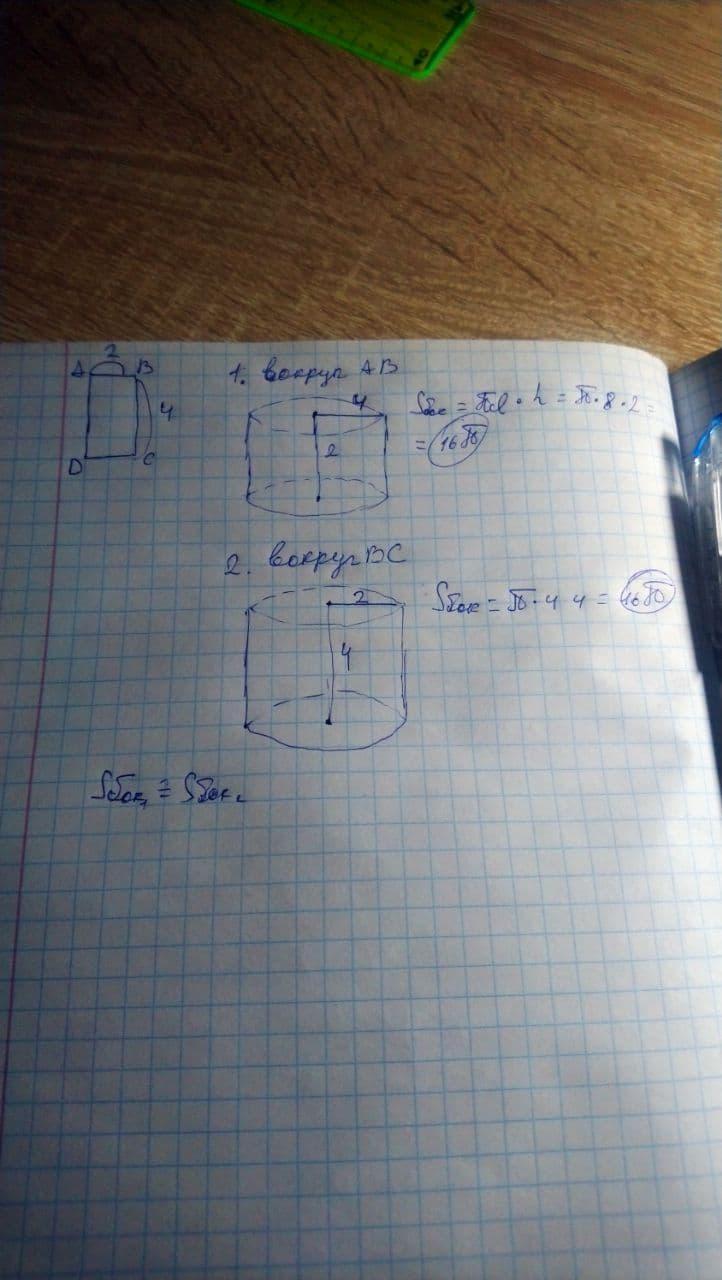 2
A B
4
D C
1. вокруг AB
4
2
Sбок = πd · h = π · 8 · 2 =
= 16π
2. вокруг BC
2
4
Sбок = π · 4 4 = 16π
Sбок₁ = Sбок₂